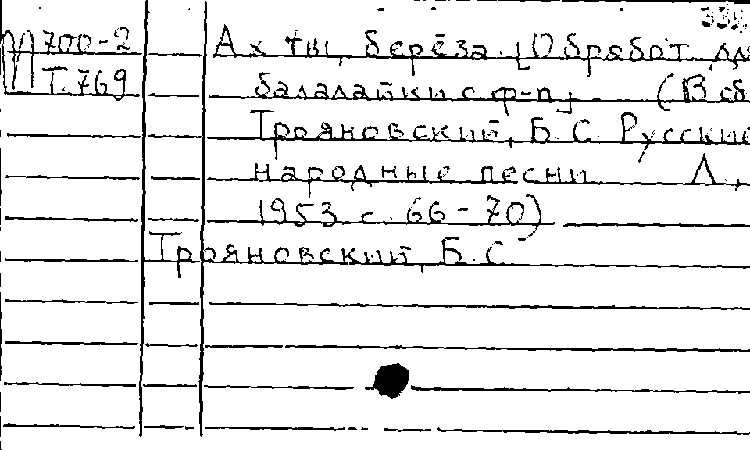 М 700-2
Т.769
Ах ты, берёза. [Обработ. дл
балалайки с ф-п] (В сб
Трояновский, Б.С. Русские
народные песни Л.,
1953 с. 66-70)
Трояновский, Б.С.